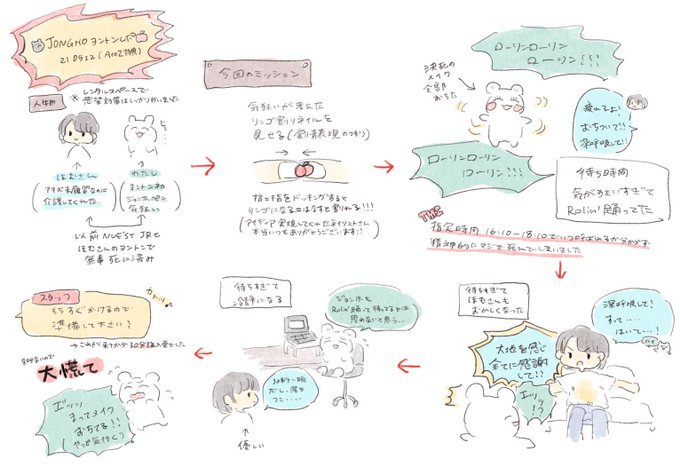 JONGHO ヨントンレポ
210512 (AtoZ特典)
人物
※ レンタルスペースで
感染対策はしっかり行いました
ほむさん
(アチズ未履習なのに
介護してくれた)
わたし
(ヨントン初
ジョンホペン
気狂い)
以前 NU'EST JRと
ほむさんのヨントンで
無事死に済み
今回のミッション
気狂いが考えた
リンゴ割りネイルを
見せる(愛情表現のつもり)
指と指をドッキングすると
リンゴになる!はなすと割れる!!!
(アイディア実現してくれたネイリストさん
本当いつもありがとうございます!!)
ローリンローリン
ローリン!!!
決死の
メイク
全部
おちた
疲れるよ!
おちついて!!
深呼吸して!
ローリンローリン
ローリン!!!
待ち時間
気がくるいすぎて
Rolin'踊ってた
指定時間 16:10-18:10でいつ呼ばれるか分からず
精神的にマジで死んでしまいました
待ちすぎて
ほむさんも
おかしくなった
深呼吸して!
すって……
はいて…!
大地を感じ
全てに感謝
して!!
エッッ
!?
待ちすぎて
冷静になる
ジョンホも
Rolin'踊って待ってるとは
思わないと思う…
30秒〜一瞬
だし、落ち
つこ・・・・
優しい
スタッフ
もうすぐかけるので
準備して下さい!
カトッ
→これから来てから30分後位に来た
大慌て
エッッ
まってメイク
おちてる!!
(やっと気付く)